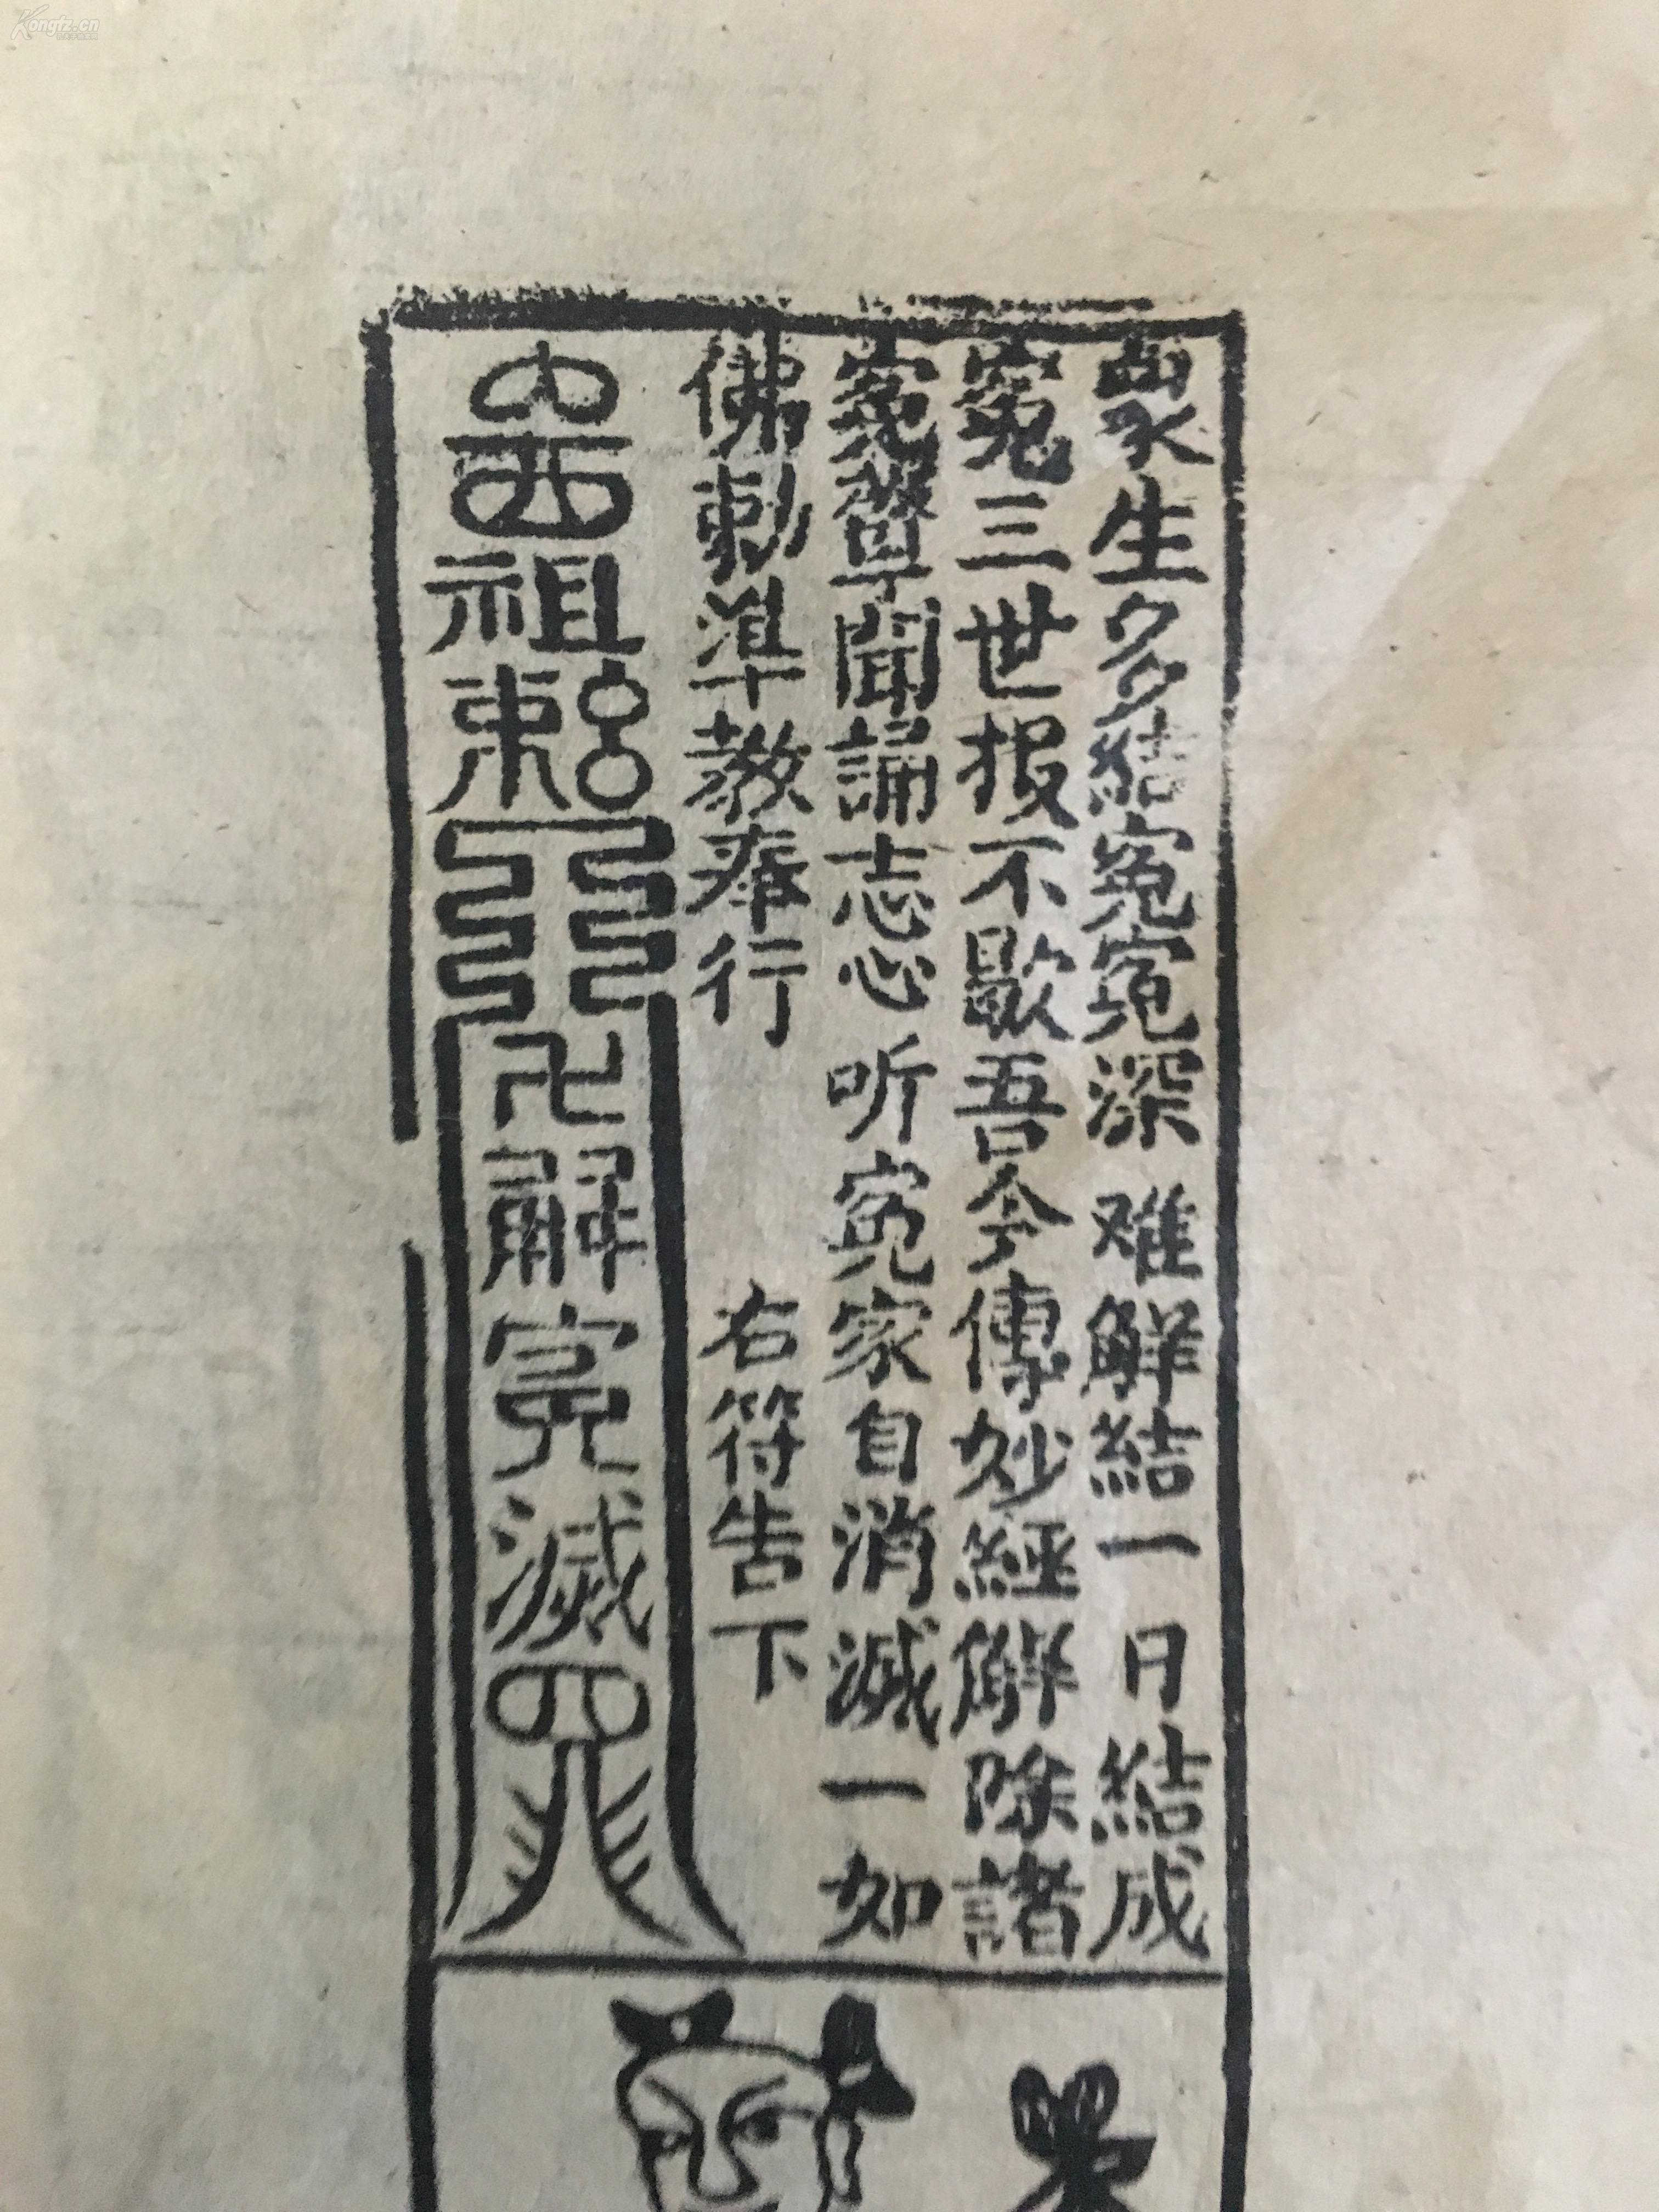 Kongfz.cn
衆生多結寃寃深难解結一日結成
寃三世报不歇吾今傳妙經解除諸
寃孽聞誦志心听寃家自消滅一如
佛勅準教奉行 右符告下
祖勅卍解寃滅